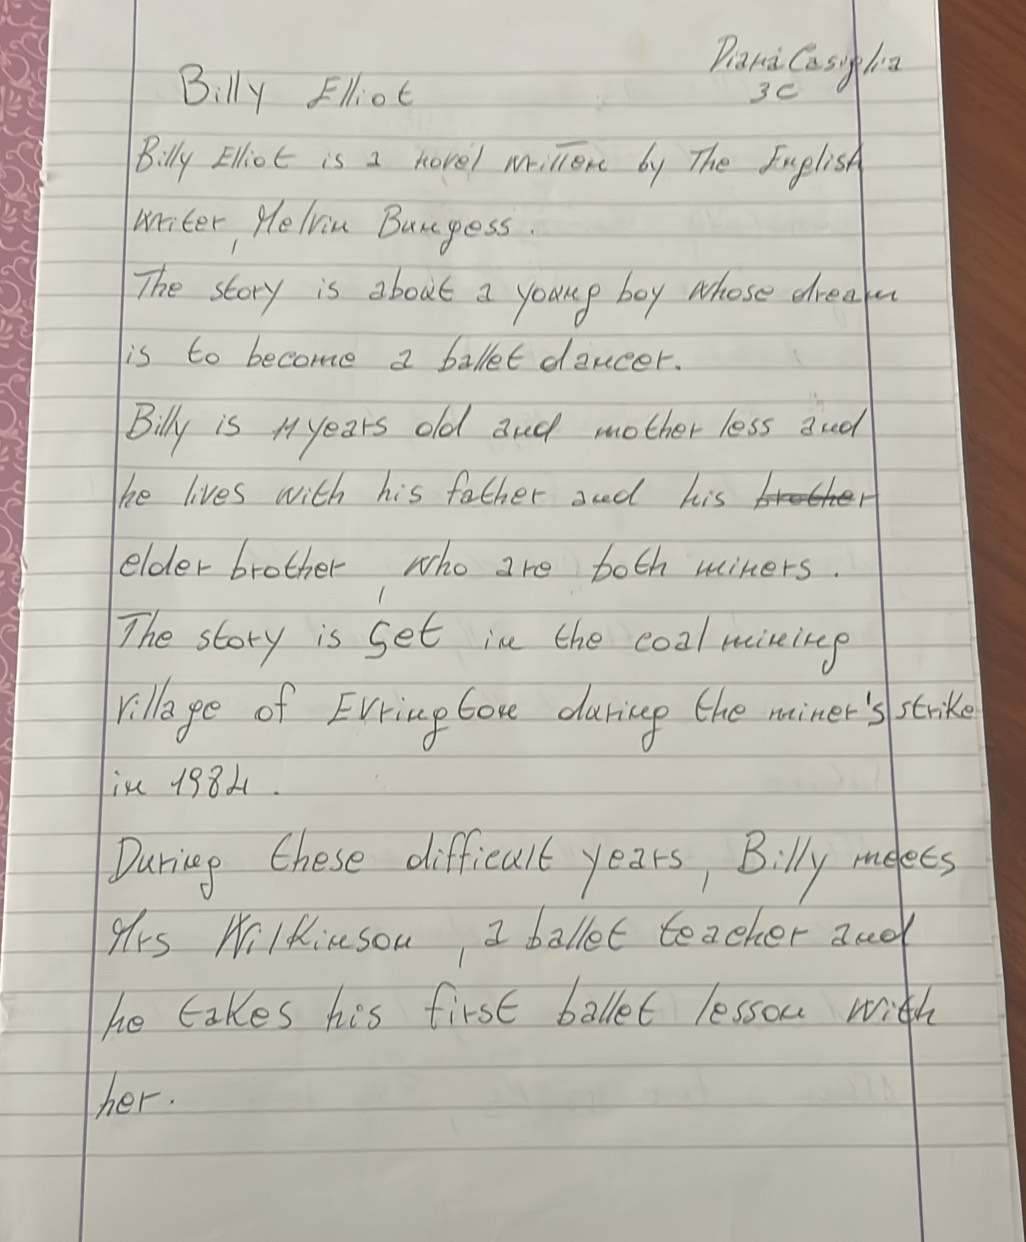 Diana Casiglia
3C
Billy Elliot
Billy Elliot is a novel written by The English
writer, Melvin Burgess.
The story is about a young boy whose dream
is to become a ballet dancer.
Billy is 11 years old and mother less and
he lives with his father and his brother
elder brother, who are both miners.
The story is set in the coal mining
village of Evrington during the miner's strike
in 1984.
During these difficult years, Billy meets
Mrs Wilkinson, a ballet teacher and
he takes his first ballet lesson with
her.